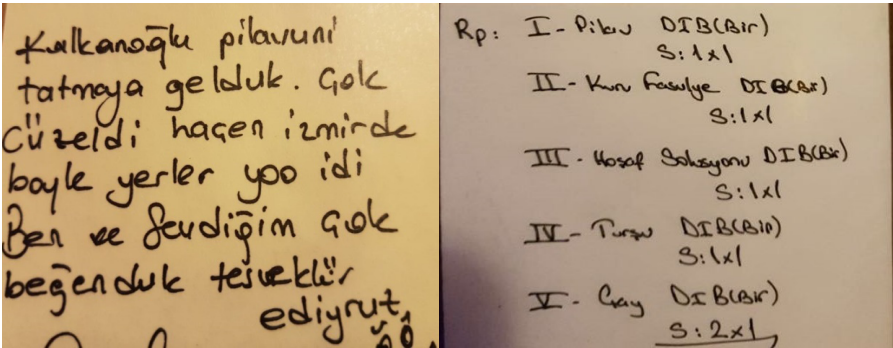 Kalkanoğlu pilavuni
tatmaya gelduk. Çok
Güzeldi haçen izmirde
boyle yerler yoo idi
Ben ve Sevdiğim Çok
beğenduk teşveklür
ediyrut,
Rp: I - Pilav DIB(Bir)
S: 1x1
II - Kuru Fasulye DIB(Bir)
S: 1x1
III - Hoşaf Solüsyonu DIB(Bir)
S: 1x1
IV - Turşu DIB(Bir)
S: 1x1
V - Çay DIB(Bir)
S: 2x1